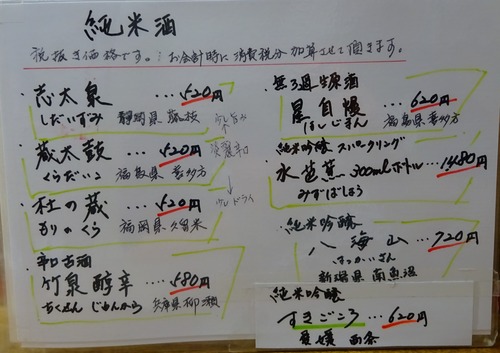 純米酒
税抜き価格です。お会計時に消費税分加算させて頂きます。
・志太泉 … 520円
しだいずみ 静岡県 藤枝
・蔵太鼓 … 520円
くらだいこ 福島県 喜多方
淡麗辛口
・杜の蔵 … 520円
もりのくら 福岡県 久留米
辛口古酒
・竹泉 醇辛 … 580円
ちくせん じゅんから 兵庫県
無ろ過生原酒
星自慢 … 620円
ほしじまん 福島県喜多方
純米吟醸 スパークリング
水芭蕉 300mlボトル … 1480円
みずばしょう
純米吟醸
八海山 … 720円
はっかいさん
新潟県 南魚沼
純米吟醸
すきごころ … 620円
愛媛 西条